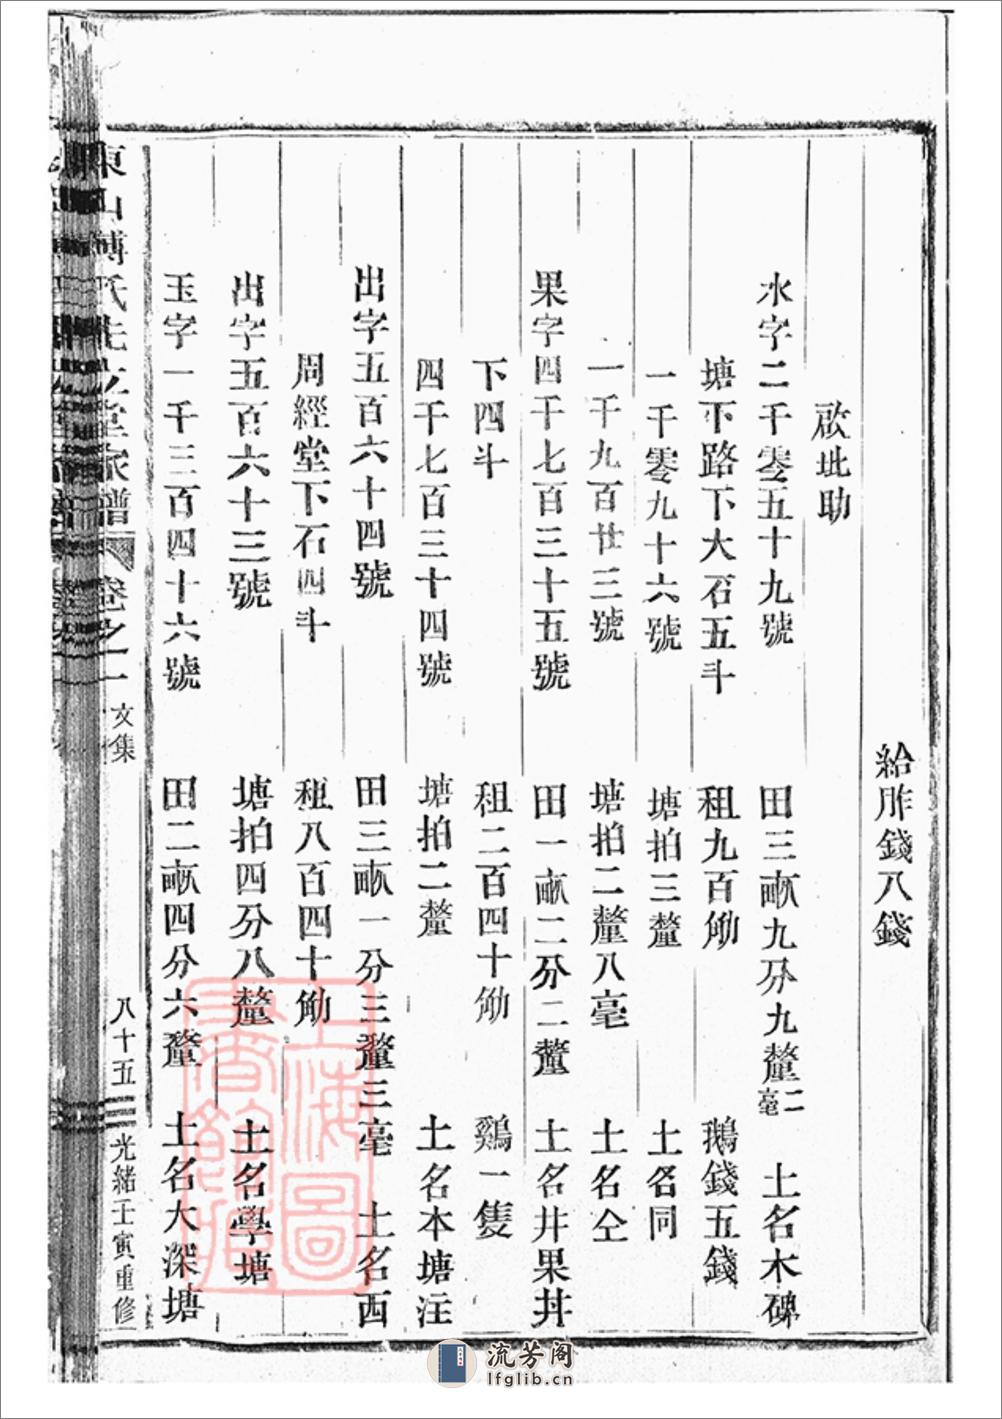 給胙錢八錢
啟址助
水字二千零五十九號 田三畝九分九釐二毫 土名木碑
塘下路下大石五斗 租九百觔 鵝錢五錢
一千零九十六號 塘拍三釐 土名同
一千九百廿三號 塘拍二釐八毫 土名仝
果字四千七百三十五號 田一畝二分二釐 土名井果丼
下四斗 租二百四十觔 鷄一隻
四千七百三十四號 塘拍二釐 土名本塘注
出字五百六十四號 田三畝一分三釐三毫 土名西
周經堂下石四斗 租八百四十觔
出字五百六十三號 塘拍四分八釐 土名學塘
玉字一千三百四十六號 田二畝四分六釐 土名大深塘
東山 氏先 堂家譜 卷之一 文集 八十五 光緒壬寅重修
上海圖書館藏
流芳阁
lfglib.cn